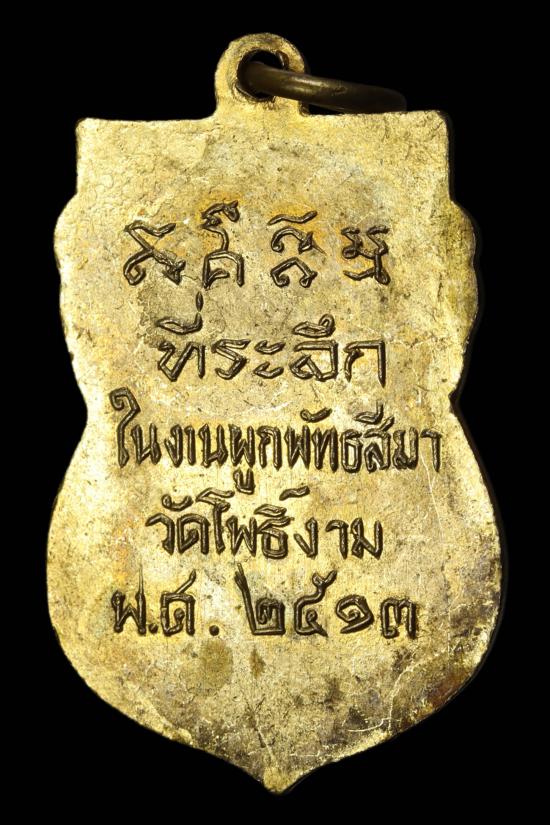 ที่ระลึก
ในงานผูกพัทธสีมา
วัดโพธิ์งาม
พ.ศ. ๒๕๑๓